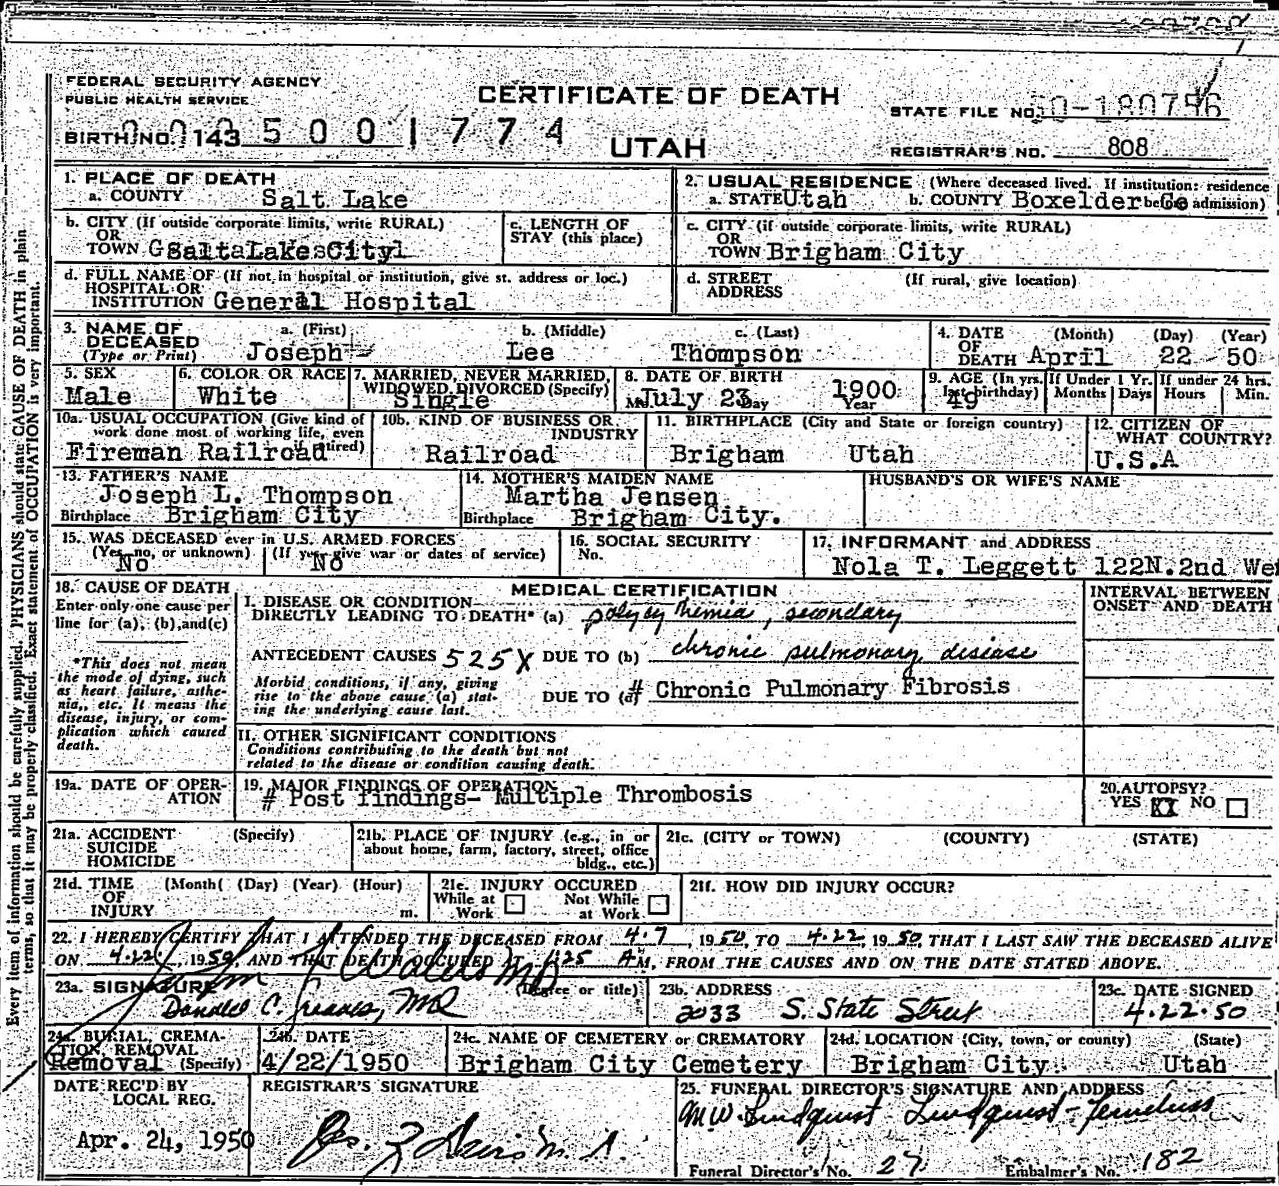 FEDERAL SECURITY AGENCY
PUBLIC HEALTH SERVICE
CERTIFICATE OF DEATH
STATE FILE NO.
BIRTH NO. 143 5 0 0 1 7 7 4
UTAH
REGISTRAR'S NO. 808
1. PLACE OF DEATH
a. COUNTY Salt Lake
2. USUAL RESIDENCE (Where deceased lived. If institution: residence before admission)
a. STATE Utah b. COUNTY Boxelder Co
b. CITY (If outside corporate limits, write RURAL)
OR
TOWN Salt Lake City
c. LENGTH OF
STAY (this place)
c. CITY (if outside corporate limits, write RURAL)
OR
TOWN Brigham City
d. FULL NAME OF (If not in hospital or institution, give st. address or loc.)
HOSPITAL OR
INSTITUTION General Hospital
d. STREET (If rural, give location)
ADDRESS
3. NAME OF DECEASED (Type or Print)
a. (First) b. (Middle) c. (Last)
Joseph Lee Thompson
4. DATE OF DEATH (Month) (Day) (Year)
April 22 50
5. SEX
Male
6. COLOR OR RACE
White
7. MARRIED, NEVER MARRIED,
WIDOWED, DIVORCED (Specify)
Single
8. DATE OF BIRTH
July 23 Day 1900 Year
9. AGE (In yrs. last birthday) 49
If Under 1 Yr. Months Days
If under 24 hrs. Hours Min.
10a. USUAL OCCUPATION (Give kind of
work done most of working life, even
if retired)
Fireman Railroad
10b. KIND OF BUSINESS OR
INDUSTRY
Railroad
11. BIRTHPLACE (City and State or foreign country)
Brigham Utah
12. CITIZEN OF
WHAT COUNTRY?
U.S.A
13. FATHER'S NAME
Joseph L. Thompson
Birthplace Brigham City
14. MOTHER'S MAIDEN NAME
Martha Jensen
Birthplace Brigham City.
HUSBAND'S OR WIFE'S NAME
15. WAS DECEASED ever in U.S. ARMED FORCES
(Yes, no, or unknown) (If yes, give war or dates of service)
No No
16. SOCIAL SECURITY
No.
17. INFORMANT and ADDRESS
Nola T. Leggett 122N.2nd We
18. CAUSE OF DEATH
Enter only one cause per
line for (a), (b), and (c)
*This does not mean
the mode of dying, such
as heart failure, asthe-
nia, etc. It means the
disease, injury, or com-
plication which caused
death.
MEDICAL CERTIFICATION
INTERVAL BETWEEN
ONSET AND DEATH
I. DISEASE OR CONDITION
DIRECTLY LEADING TO DEATH* (a) polycythemia, secondary
ANTECEDENT CAUSES 525X DUE TO (b) chronic pulmonary disease
Morbid conditions, if any, giving
rise to the above cause (a) stat-
ing the underlying cause last.
DUE TO # Chronic Pulmonary Fibrosis
II. OTHER SIGNIFICANT CONDITIONS
Conditions contributing to the death but not
related to the disease or condition causing death.
19a. DATE OF OPER-
ATION
19. MAJOR FINDINGS OF OPERATION
# Post findings- Multiple Thrombosis
20. AUTOPSY?
YES XX NO
21a. ACCIDENT (Specify)
SUICIDE
HOMICIDE
21b. PLACE OF INJURY (e.g., in or
about home, farm, factory, street, office
bldg., etc.)
21c. (CITY or TOWN) (COUNTY) (STATE)
21d. TIME (Month( (Day) (Year) (Hour)
OF
INJURY m.
21e. INJURY OCCURED
While at Work Not While at Work
21f. HOW DID INJURY OCCUR?
22. I HEREBY CERTIFY THAT I ATTENDED THE DECEASED FROM 4.7, 1950, TO 4.22, 1950, THAT I LAST SAW THE DECEASED ALIVE
ON 4.22, 1950 AND THAT DEATH OCCURED AT 1:25 A M, FROM THE CAUSES AND ON THE DATE STATED ABOVE.
23a. SIGNATURE (Degree or title)
Donald C. Greaves, MD
23b. ADDRESS
2033 S. State Street
23c. DATE SIGNED
4.22.50
24a. BURIAL, CREMA-
TION, REMOVAL
(Specify) Removal
24b. DATE
4/22/1950
24c. NAME OF CEMETERY or CREMATORY
Brigham City Cemetery
24d. LOCATION (City, town, or county) (State)
Brigham City Utah
DATE REC'D BY
LOCAL REG.
Apr. 24, 1950
REGISTRAR'S SIGNATURE
25. FUNERAL DIRECTOR'S SIGNATURE AND ADDRESS
M.W. Lindquist
Funeral Director's No. 27 Embalmer's No. 182
Every item of information should be carefully supplied. PHYSICIANS should state CAUSE OF DEATH in plain
terms, so that it may be properly classified. Exact statement of OCCUPATION is very important.